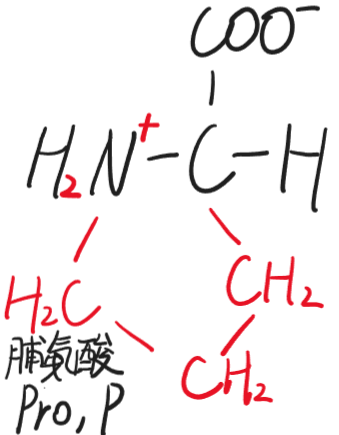 COO⁻
H₂N⁺-C-H
H₂C
CH₂
CH₂
脯氨酸
Pro, P